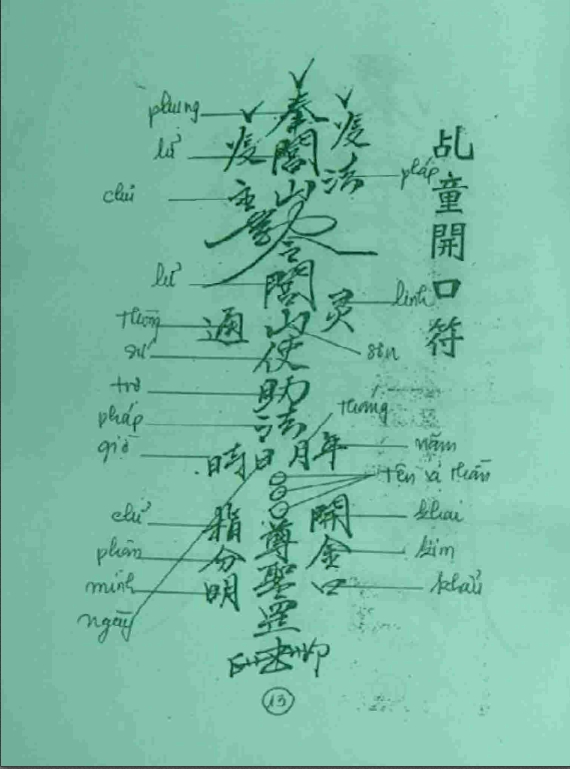 乩童開口符
奉
phụng
煖
煖
閭
lư
法
pháp
山
主
chủ
令
閭
lư
灵
linh
通
thông
山
sơn
使
sứ
助
trợ
法
pháp
tháng
時
giờ
日
月
年
năm
tên vị thần
指
chỉ
尊
開
khai
分
phân
聖
金
kim
明
minh
罡
口
khẩu
ngày
印
13